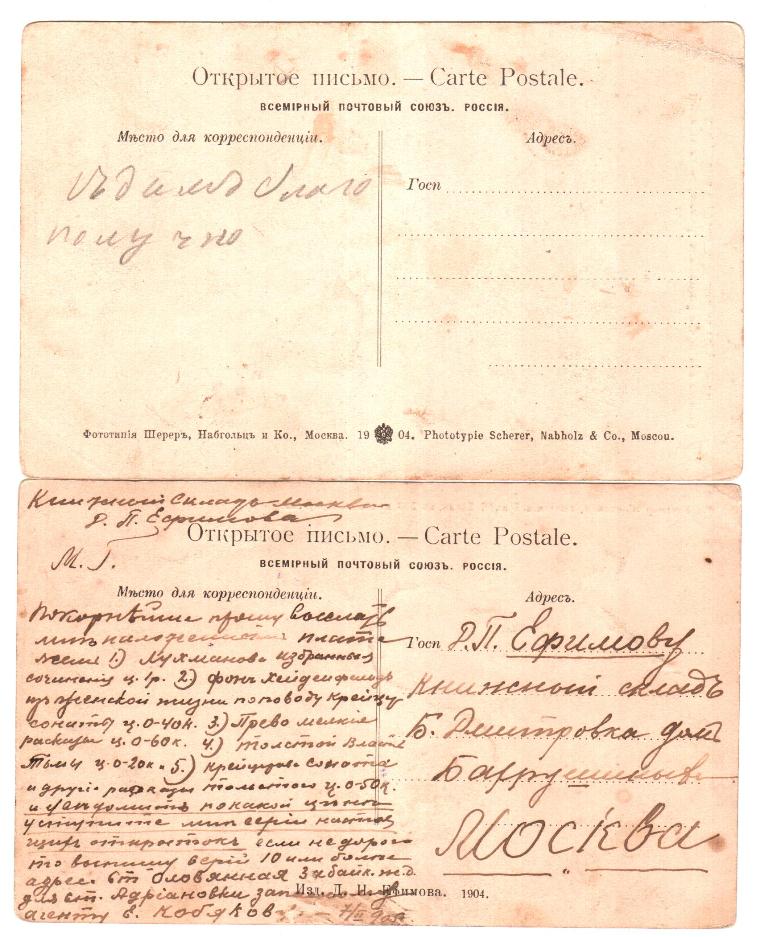 Открытое письмо. — Carte Postale.
ВСЕМІРНЫЙ ПОЧТОВЫЙ СОЮЗЪ. РОССІЯ.
Мѣсто для корреспонденціи.
Адресъ.
благо
получно
Госп
Фототипія Шереръ, Набгольцъ и Ко., Москва. 19 04. Phototypie Scherer, Nabholz & Co., Moscou.
Книжный Складъ Москва
Д. П. Ефимова
Открытое письмо. — Carte Postale.
М. Г.
ВСЕМІРНЫЙ ПОЧТОВЫЙ СОЮЗЪ. РОССІЯ.
Мѣсто для корреспонденціи.
Покорнѣйше прошу выслать
мнѣ наложеннымъ плате
жемъ 1.) Лухманова избранныя
сочиненія ц. 1р. 2.) фонъ
изъ женской жизни по поводу Крейцер
сонаты ц. 0-40к. 3.) Прево мелкіе
разсказы ц. 0-60к. 4.) Толстой Власть
Тьмы ц. 0-20к. 5.) Крейцерова Соната
и другіе разсказы Толстого ц. 0-50к.
и увѣдомить по какой цѣнѣ
уступите мнѣ серію настоя
щихъ открытокъ если недорого
то выпишу серій 10 или болѣе
адрес ст. Оловянная Забайк. ж. д.
для ст. Адріановки
агенту
Адресъ.
Госп Д. П. Ефимову
Книжный складъ
Б. Дмитровка домъ
Бахрушиныхъ
Москва
Изд. Д. П. Ефимова. 1904.